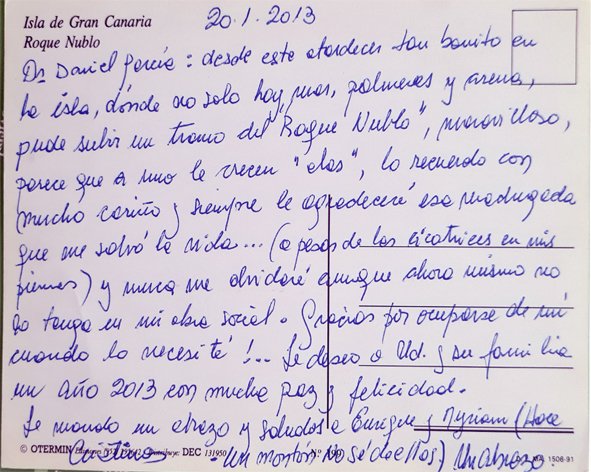 Isla de Gran Canaria
Roque Nublo
20.1.2013
Dr Daniel García: desde este atardecer tan bonito en
la isla, dónde no solo hay mar, palmeras y arena,
pude subir un tramo del "Roque Nublo", maravilloso,
parece que a uno le crecen "alas", lo recuerdo con
mucho cariño y siempre le agradeceré esa madrugada
que me salvó la vida... (a pesar de las cicatrices en mis
piernas) y nunca me olvidaré aunque ahora mismo no
lo tenga en mi obra social. Gracias por ocuparse de mí
cuando lo necesité!... Le deseo a Ud. y su familia
un Año 2013 con mucha paz y felicidad.
Le mando un abrazo y saludos a Enrique y Myriam (Hace
un montón no sé de ellos) Un abrazo.
© OTERMIN DEC 131950
1508-91